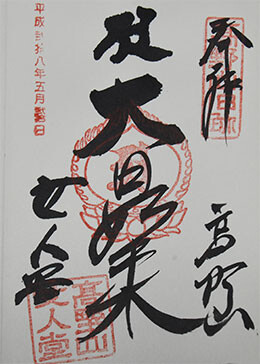 奉拝
高野山
大日如来
女人堂
平成弐拾八年五月 日
高野山
女人堂